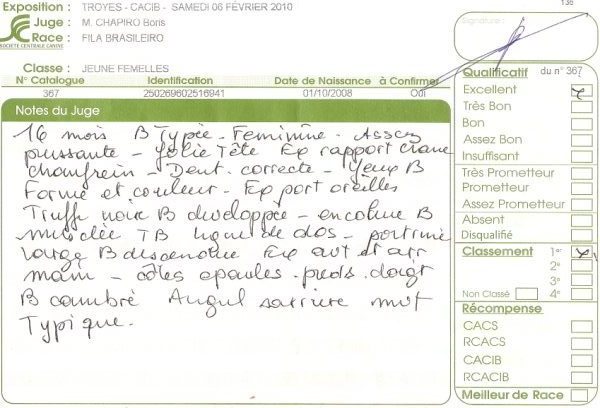 136
Exposition : TROYES - CACIB - SAMEDI 06 FÉVRIER 2010
Juge : M. CHAPIRO Boris
Race : FILA BRASILEIRO
SOCIÉTÉ CENTRALE CANINE
Classe : JEUNE FEMELLES
N° Catalogue Identification Date de Naissance à Confirmer
367 250269602516941 01/10/2008 Oui
Notes du Juge
16 mois B Typée - Féminine - Assez
puissante - Jolie Tête Ex rapport crane
chanfrein - Dent. correcte - Yeux B
Forme et couleur - Ex port oreilles
Truffe noire B developpée - encolure B
musclée TB ligne de dos - poitrine
large B descendue Ex avt et arr
main - côtes epaules - pieds - doigt
B cambré Angul arrière mvt
Typique.
Signature :
Qualificatif du n° 367
Excellent X
Très Bon
Bon
Assez Bon
Insuffisant
Très Prometteur
Prometteur
Assez Prometteur
Absent
Disqualifié
Classement 1er X
2e
3e
Non Classé 4e
Récompense
CACS
RCACS
CACIB
RCACIB
Meilleur de Race